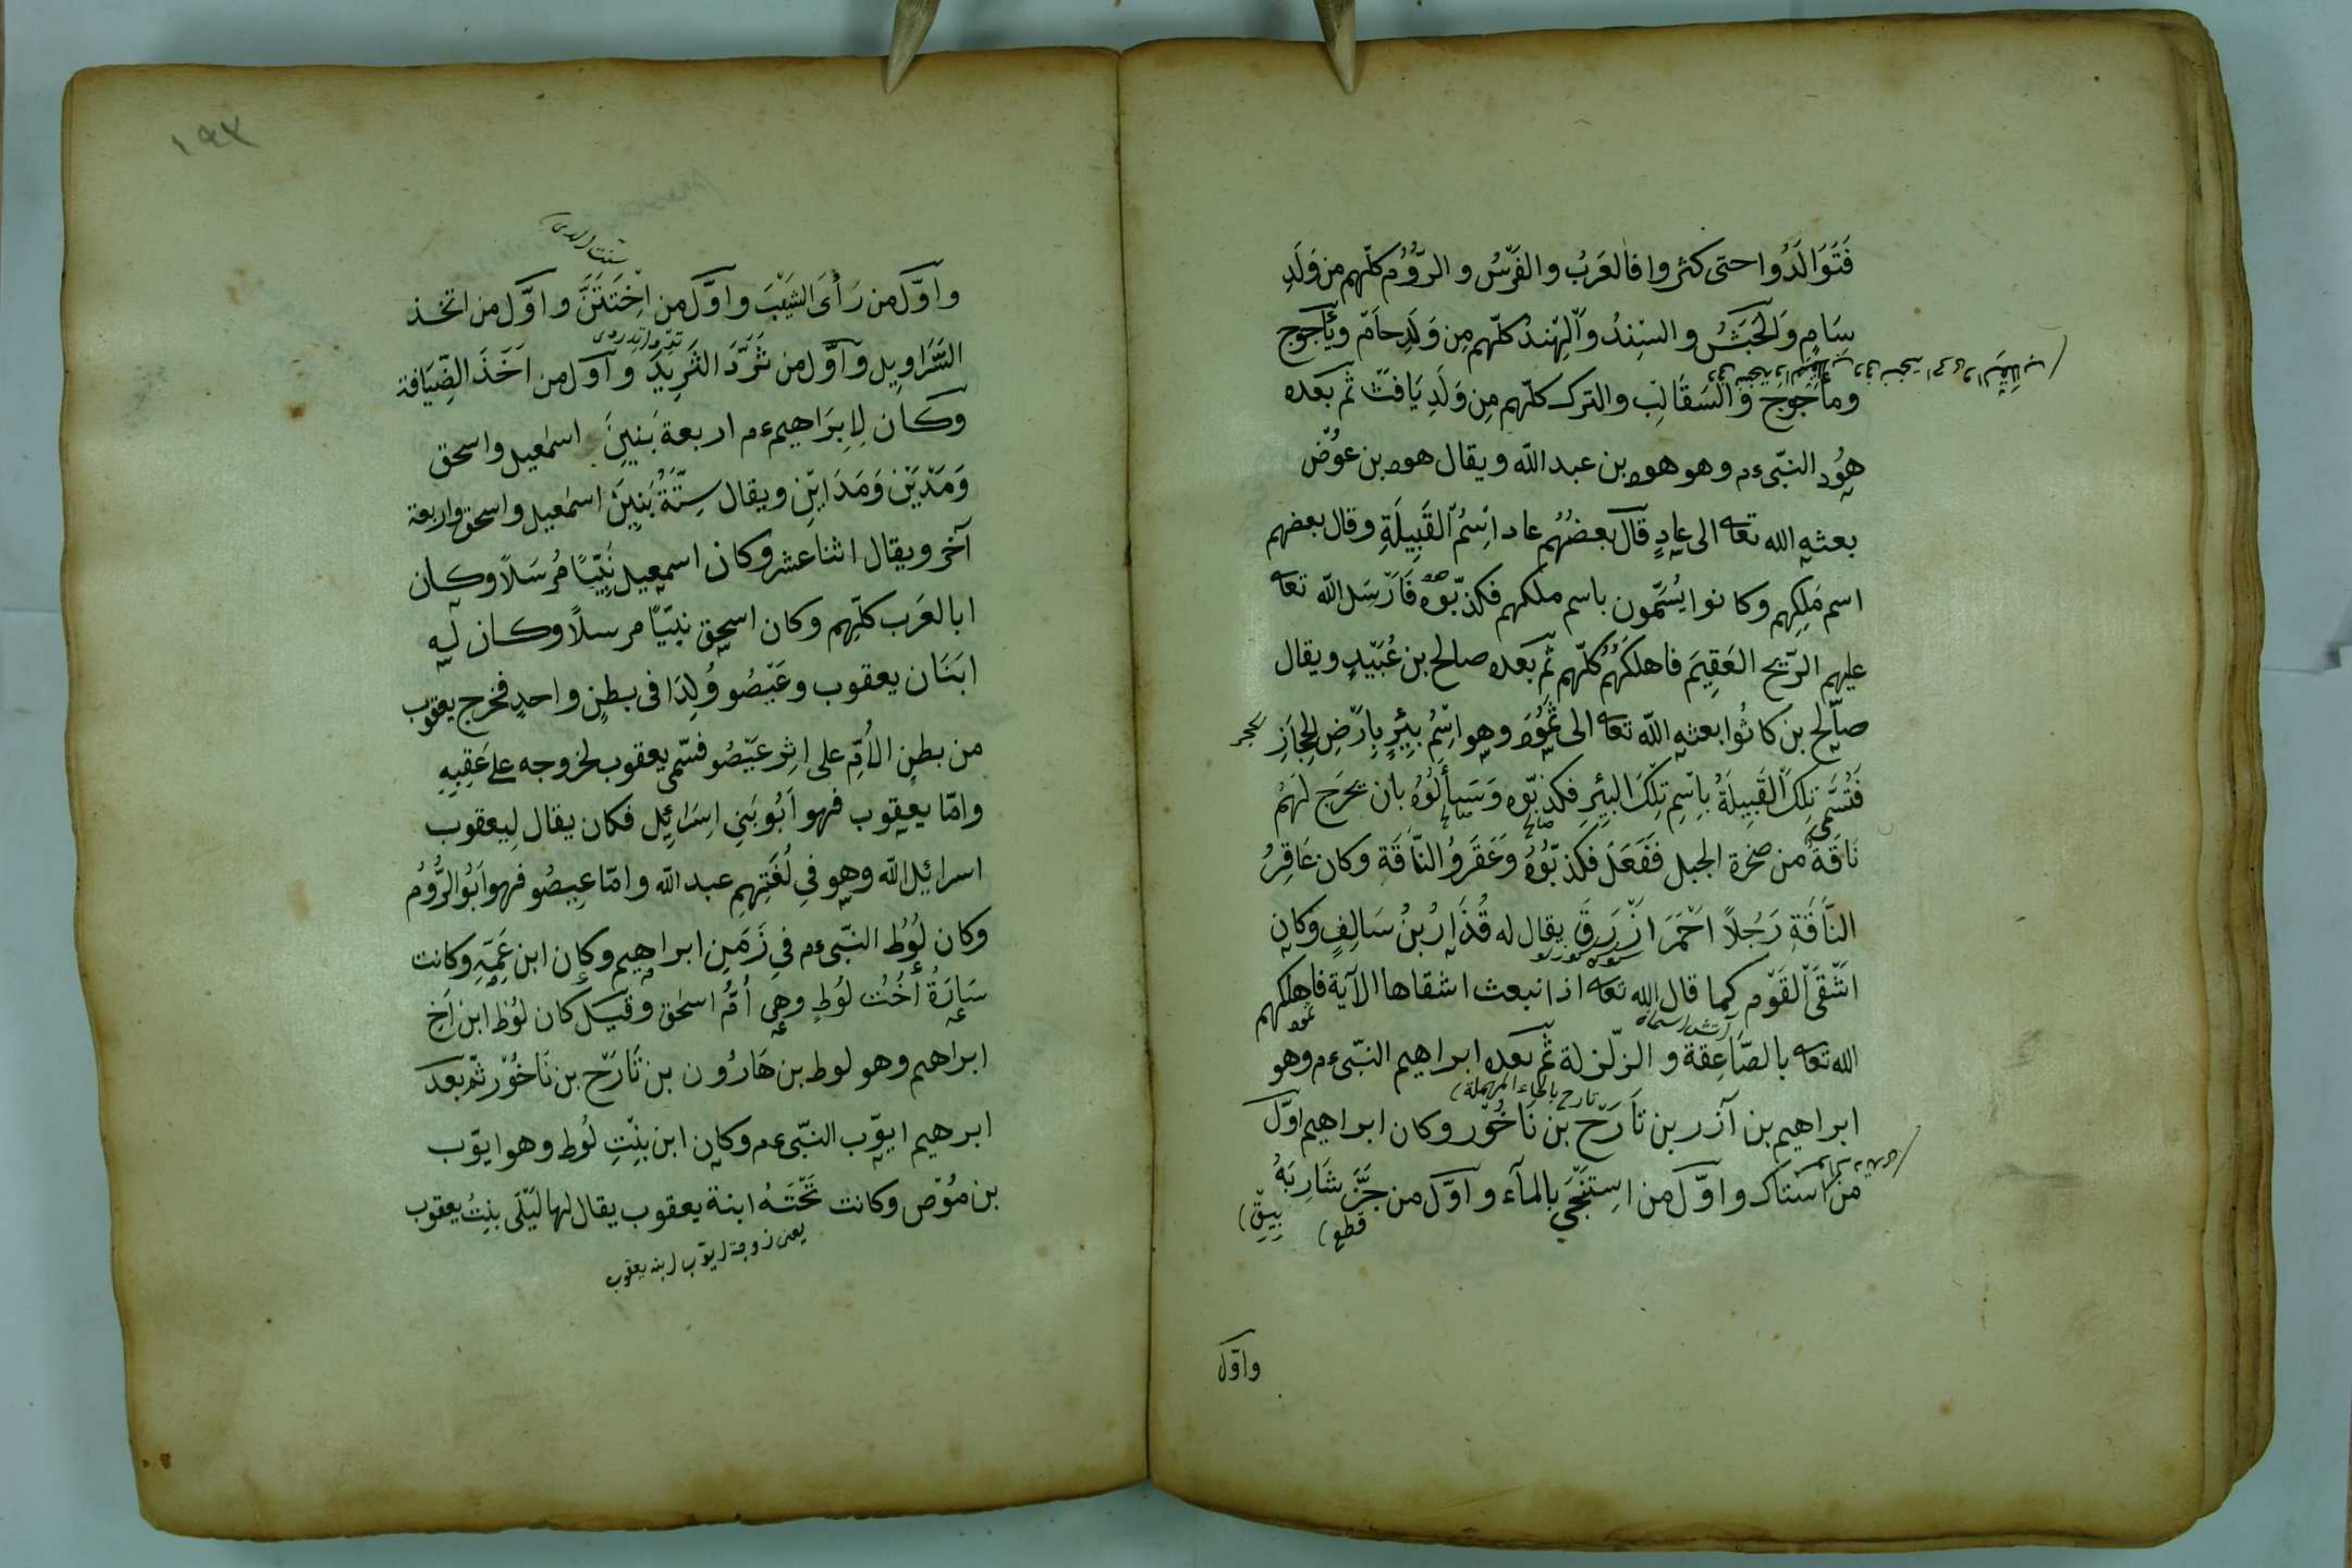 فَتَوَالَدُوا حتى كثروا فالعَرَبُ والفَرْسُ والرُّوُمُ كلّهم من وَلَدِ
سَامٍ وَالحَبَشُ والسِّنِدُ وَالهِنْدُ كلّهم مِن وَلَدِ حاَمْ ويَأْجوج
ومأَجوج وَالسَقَالِب والترك كلّهم مِن وَلَدِ يَافَثْ ثم بَعده
هُود النّبىءم وهو هود بن عبد الله ويقال هود بن عوُض
بعثه الله تعا الى عادٍ قَالَ بَعضُهُم عاد اسْمُ القَبِيلَةِ وقال بعضهم
اسم مَلِكِهم وكانوا يُسَمّون باسم ملكهم فكذبّوه فَاَرْسَل الله تعا
عليهم الرّيح العَقِيمَ فاهلكَهُم كلّهم ثم بَعده صالح بن عُبَيْدٍ ويقال
صاَلِح بن كاثُوا بعثه الله تعا الى ثمَُود وهو اسْمُ بِئْرٍ بِاَرْضِ الحِجَازِ
للحجر
فَتُسَمَّى تِلكَ القَبِيلَةُ بِاسْمِ تِلْكَ البِئرِ فكذبّوه وَسَأَلُوُهُ بان يخرَج لَهمُ
صالح صالح
نَاقَةً من صخرة الجبل فَفَعَلَ فكذبّوُهُ وَعَقَروُ النّاَقَة وكان عَاقِرُ
النَّاقَةِ رَجُلاً اَحْمَرَ اَزْرَقَ يقال له قُذَارُ بنُ سَالِفٍ وَكان
اَشْقَى القَوْم كما قال الله تعا اذا نبعث اشقاها الآية فاهلكهم
الله تعا بالصَّاعِقة والزّلزلة ثم بَعده ابراهيم النّبىءم وهو
تارح بالحاء المهملة
ابراهيم بن آزر بن تاَرَحْ بن نَاخُوْر وكان ابراهيم اوّل
من استاك واوّل من استَنجَي بِالمآء واوّل من جَزَّ شَارِبَهُ
قطع
بيق
واوّل
١٩٣
واوّل من رَأىَ الشَيْبَ واوَّل من اخْتَتَنَ واوَّل من اتخذ
السَّرَاوِيل واوّل من ثَرَّدَ الثَّرِيدَ واوّل من اَخَذَ الضِّيَافة
وكان لِاِبَراهيمءم اربعة بَنيِنَ اسمعيل واسحق
وَمَدْيَنْ وَمَدَايِنْ ويقال سِتَّةُ بَنِينَ اسمعيل واسحق واربعة
آخر ويقال اثنا عشر وكان اسمعيل نَبيّاً مُرسَلاً وكان
ابا العَرَب كلّهم وكان اسحق نبيّاً مرسلاً وكان له
ابنَان يعقوب وعَيْصُو وُلِدَا فى بطنٍ واحدٍ فخرج يعقوب
من بطنِ الاُمِّ على اثر عَيْصُو فسّمى يعقوب لخروجه علے عَقِبِهِ
وامّا يعقوب فهو اَبُو بَنِي اِسرَائِل فكان يقال لِيعقوب
اسرائيل الله وهو في لُغَتِهِم عبد الله وامّا عِيصُو فهو اَبُو الرُّوُم
وكان لُوُط النّبىءم في زَمَنِ ابراهيم وكان ابن عَمِّهِ وكانت
سَارَةُ اُخْت لوُطٍ وهى اُمُّ اسحَق وقيل كان لُوُط ابن اَخِ
ابراهيم وهو لوط بن هَارُون بن تَارَحْ بن نَاخُوْر ثم بعد
ابرهيم ايوّب النّبىءم وكان ابن بِنْتِ لُوُط وهو ايوّب
بن مُوْص وكانت تَحْتَهُ ابنة يعقوب يقال لها لَيْلَى بِنْتُ يعقوب
يعنى زوجة ايوب ابنة يعقوب